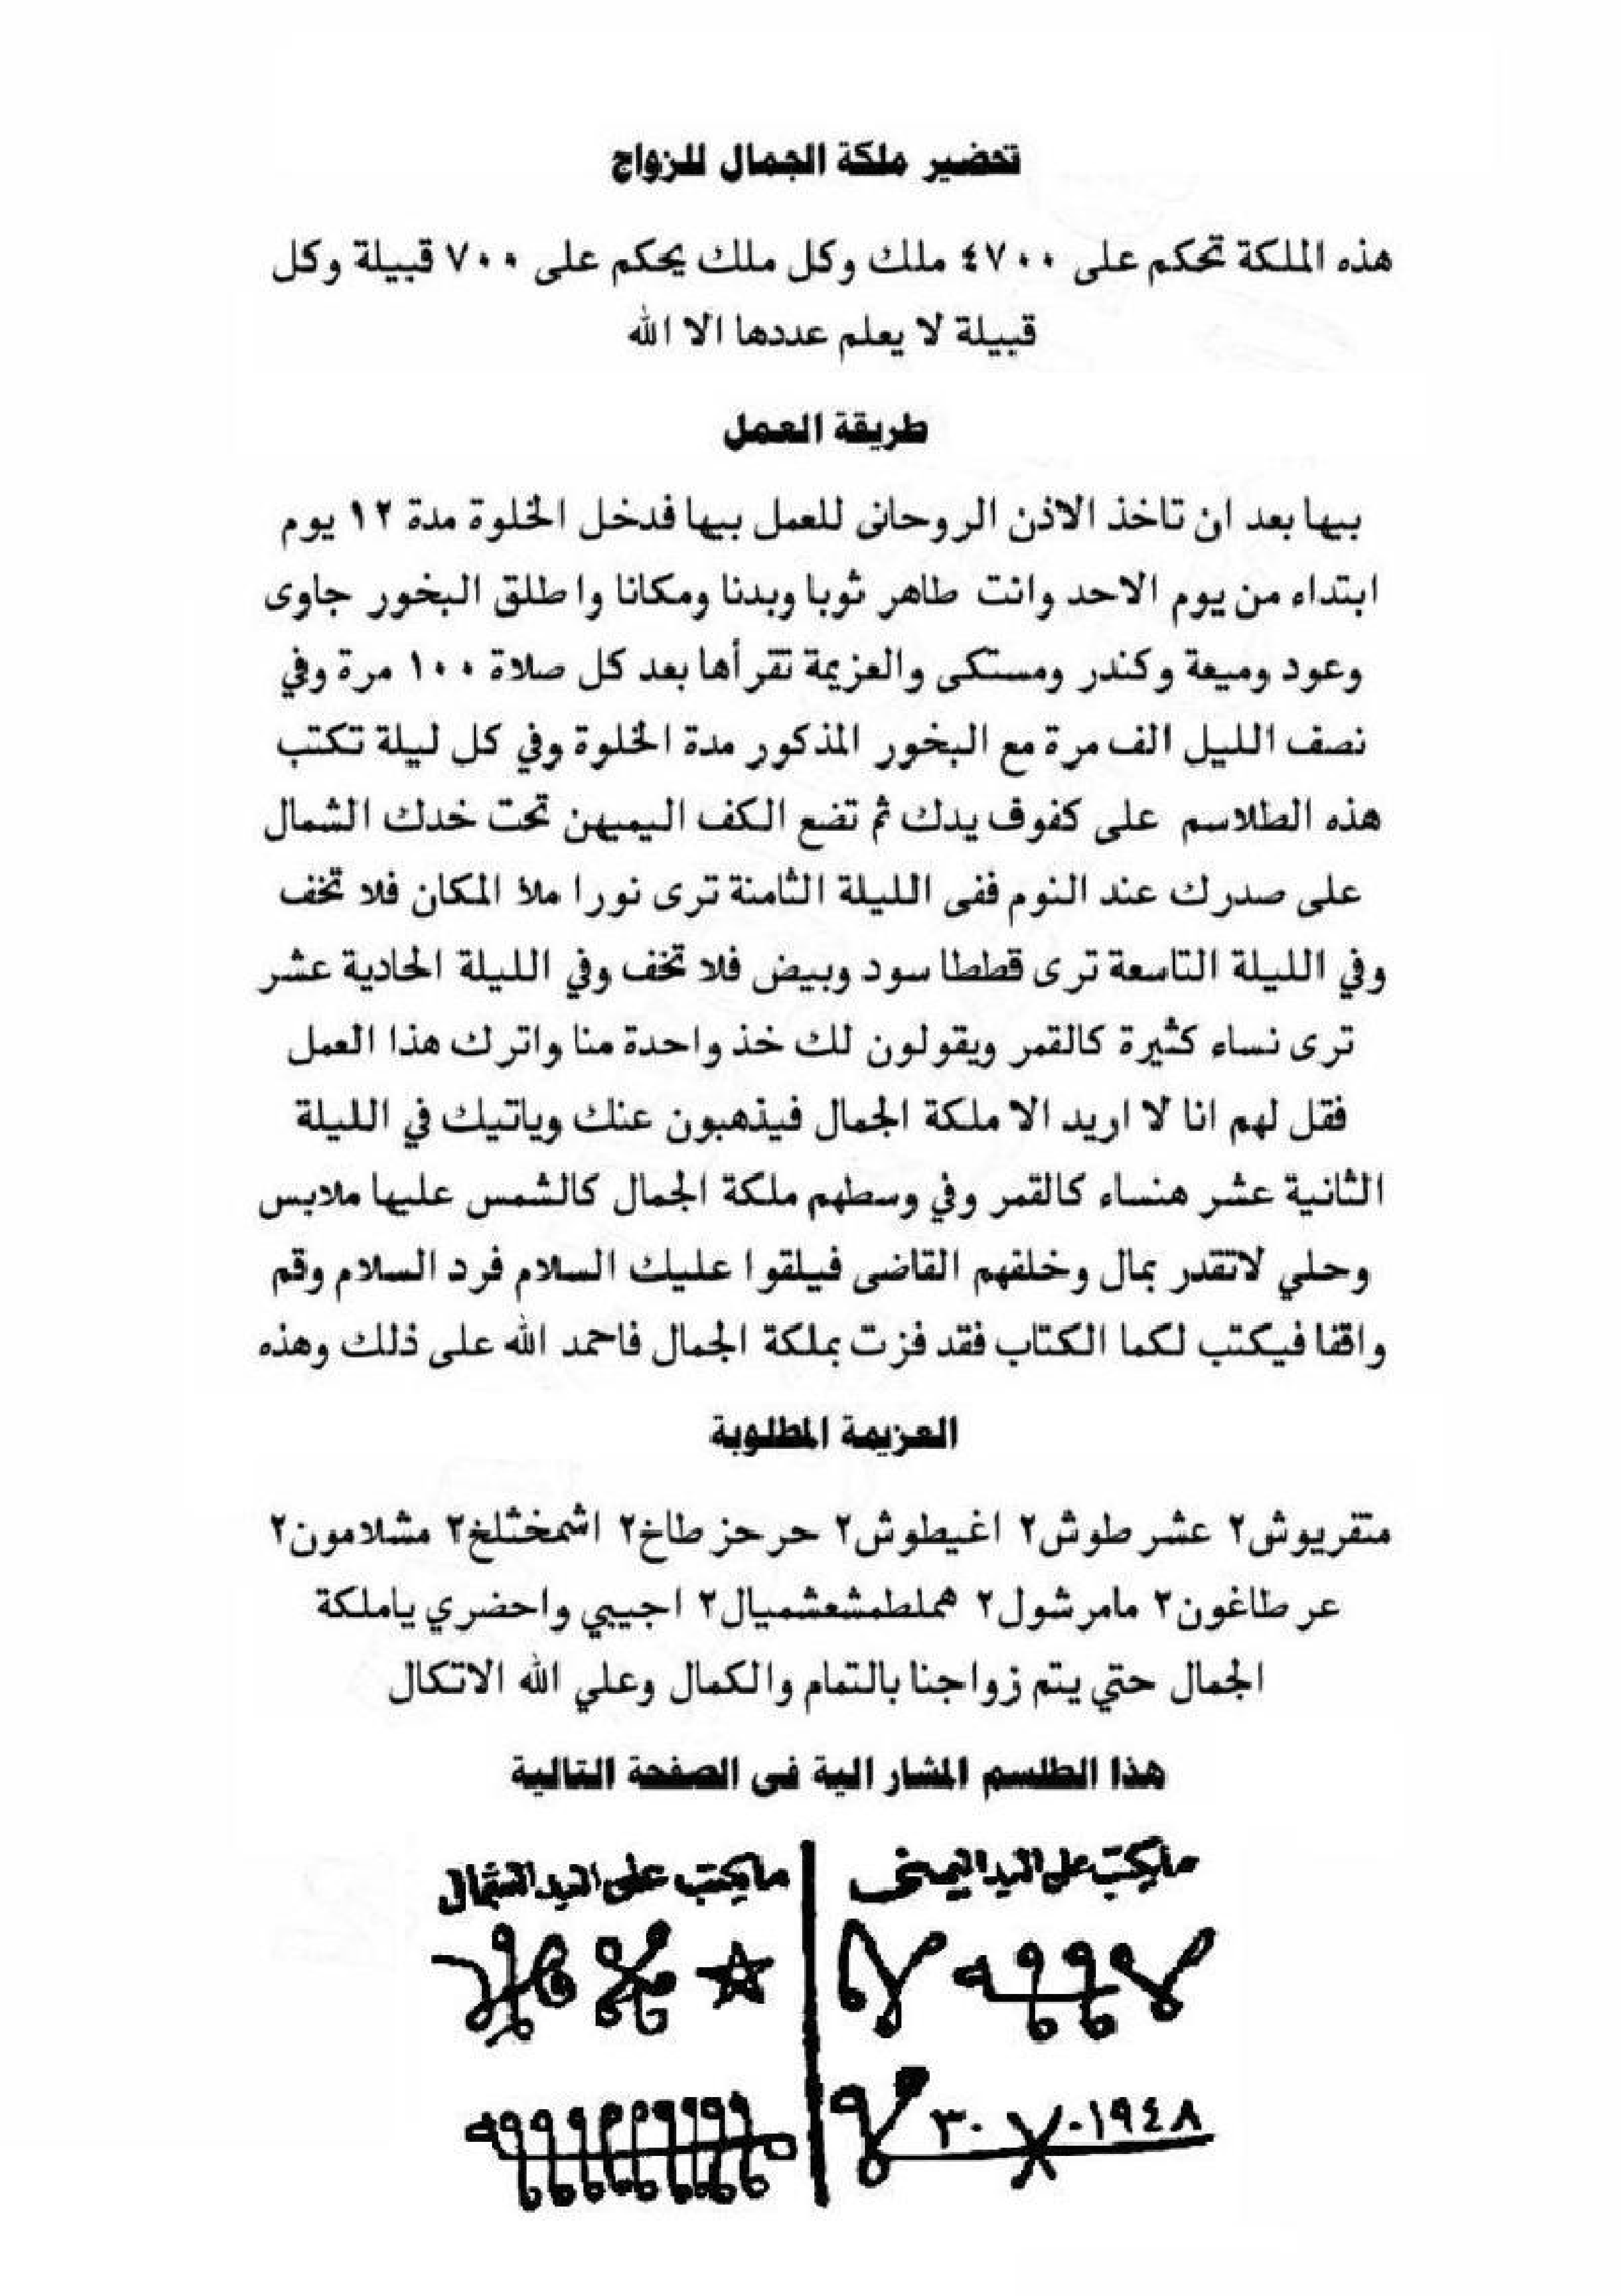 تحضير ملكة الجمال للزواج
هذه الملكة تحكم على ٤٧٠٠ ملك وكل ملك يحكم على ٧٠٠ قبيلة وكل
قبيلة لا يعلم عددها الا الله
طريقة العمل
بيها بعد ان تاخذ الاذن الروحانى للعمل بيها فدخل الخلوة مدة ١٢ يوم
ابتداء من يوم الاحد وانت طاهر ثوبا وبدنا ومكانا واطلق البخور جاوى
وعود وميعة وكندر ومستكى والعزيمة تقرأها بعد كل صلاة ١٠٠ مرة وفي
نصف الليل الف مرة مع البخور المذكور مدة الخلوة وفي كل ليلة تكتب
هذه الطلاسم على كفوف يدك ثم تضع الكف اليميهن تحت خدك الشمال
على صدرك عند النوم ففى الليلة الثامنة ترى نورا ملأ المكان فلا تخف
وفي الليلة التاسعة ترى قططا سود وبيض فلا تخف وفي الليلة الحادية عشر
ترى نساء كثيرة كالقمر ويقولون لك خذ واحدة منا واترك هذا العمل
فقل لهم انا لا اريد الا ملكة الجمال فيذهبون عنك وياتيك في الليلة
الثانية عشر هنساء كالقمر وفي وسطهم ملكة الجمال كالشمس عليها ملابس
وحلي لاتقدر بمال وخلفهم القاضى فيلقوا عليك السلام فرد السلام وقم
واقفا فيكتب لكما الكتاب فقد فزت بملكة الجمال فاحمد الله على ذلك وهذه
العزيمة المطلوبة
متقريوش٢ عشرطوش٢ اغيطوش٢ حرحزطاخ٢ اشمخثلخ٢ مشلامون٢
عرطاغون٢ مامرشول٢ هملطمشعشميال٢ اجيبي واحضري ياملكة
الجمال حتي يتم زواجنا بالتمام والكمال وعلي الله الاتكال
هذا الطلسم المشار الية فى الصفحة التالية
مايكتب على اليد اليمنى
مايكتب على اليد الشمال
٣٠ ٠١٩٤٨